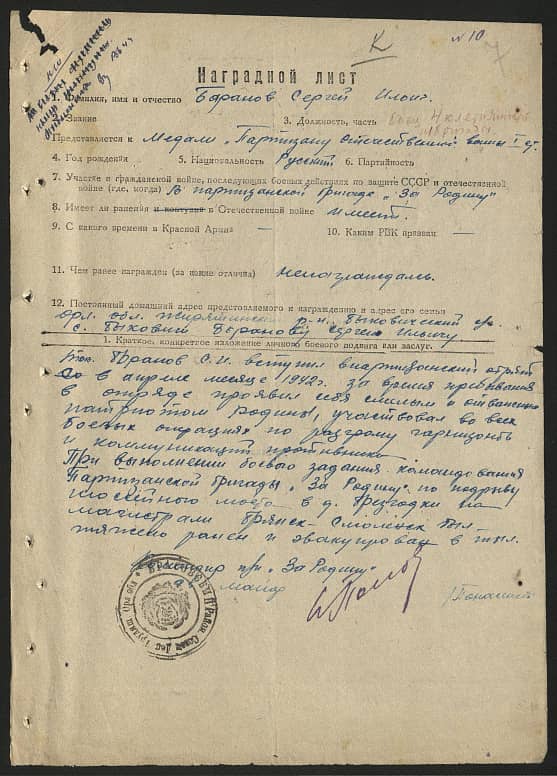 К
№10
7
Наградной лист
1. Фамилия, имя и отчество Баранов Сергей Ильич.
2. Звание 3. Должность, часть боец
Представляется к Медали „Партизану Отечественной войны I ст.
4. Год рождения 5. Национальность Русский 6. Партийность
7. Участие в гражданской войне, последующих боевых действиях по защите СССР и отечественной
войне (где, когда) В партизанской бригаде „За Родину"
8. Имеет ли ранения и контузии в Отечественной войне имеет.
9. С какого времени в Красной Армии — 10. Каким РВК призван —
11. Чем ранее награжден (за какие отличия) ненагражден.
12. Постоянный домашний адрес представляемого к награждению и адрес его семьи
Орл. обл. Жирятинский р-н. Быковический с/с.
с. Быковичи Баранову Сергею Ильичу
1. Краткое, конкретное изложение личного боевого подвига или заслуг.
тов. Баранов С.И. вступил в партизанский отряд
в апреле месяце 1942г. за время пребывания
в отряде проявил себя смелым и отважным
патриотом Родины, участвовал во всех
боевых операциях по разгрому гарнизонов
и коммуникаций противника.
При выполнении боевого задания командования
Партизанской бригады „За Родину" по подрыву
шоссейного моста в д. на
магистрали Брянск-Смоленск был
тяжело ранен и эвакуирован в тыл.
Командир п/бр „За Родину"
майор